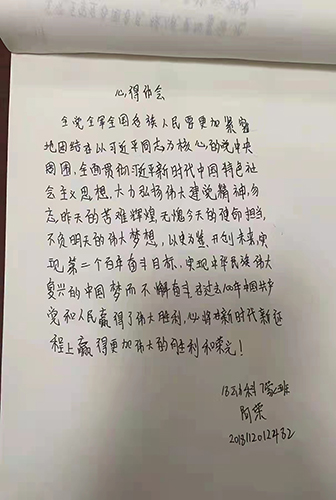 心得体会
全党全军全国各族人民要更加紧密
地团结在以习近平同志为核心的党中央
周围,全面贯彻习近平新时代中国特色社
会主义思想,大力弘扬伟大建党精神,勿
忘昨天的苦难辉煌,无愧今天的使命担当,
不负明天的伟大梦想,以史为鉴,开创未来,实
现第二个百年奋斗目标,实现中华民族伟大
复兴的中国梦而不懈奋斗,在过去100年中国共产
党和人民赢得了伟大胜利,必将在新时代新征
程上赢得更加伟大的胜利和荣光!
2018112012432